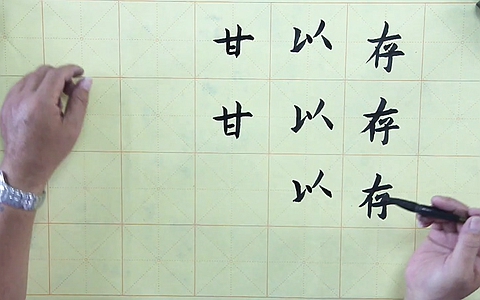 存存存
以以以
甘甘